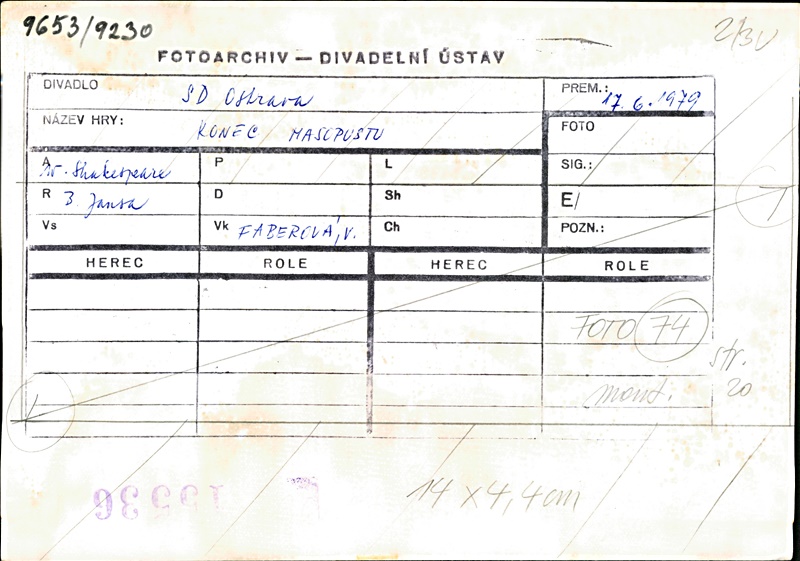 9653/9230
2/3V
FOTOARCHIV — DIVADELNÍ ÚSTAV
DIVADLO SD Ostrava PREM.: 17. 6. 1979
NÁZEV HRY: KONEC MASOPUSTU FOTO
A W. Shakespeare P L SIG.:
R B. Jansa D Sh E/
Vs Vk FABEROVÁ, V. Ch POZN.:
HEREC ROLE HEREC ROLE
FOTO 74
str. 20
mont.
14 x 4,4 cm